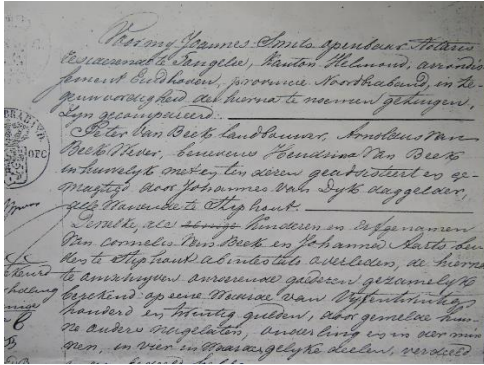 Voor my Joannes Smits openbaar Notaris
residerende te Tongelre, kanton Helmond, arrondis
sement Eindhoven, provincie Noordbraband, in te-
genwoordigheid der hierna te noemen getuigen,
Zyn gecompareerd:
Peter Van Beek landbouwer, Arnoldus Van
Beek Wever, benevens Hendrina Van Beek
in huwelyk met en ten deren geadsisteert en ge-
magtigd door Johannes van Dyk daggelder,
alle Wonende te Stiphout.
Dezelve, als eenige Kinderen en Erfgenamen
Van Cornelis Van Beek en Johanna Aarts bei
des te Stiphout abintestato overleden, de hierna
te omschryven onroerende goederen gezamelyk
berekend op eene Waarde van Vyftienhonderd
honderd en twintig gulden, door gemelde hun-
ne ouders nagelaten, onderling en in der min
nen, in vier in Waarde gelyke deelen, verdeeld
OFC